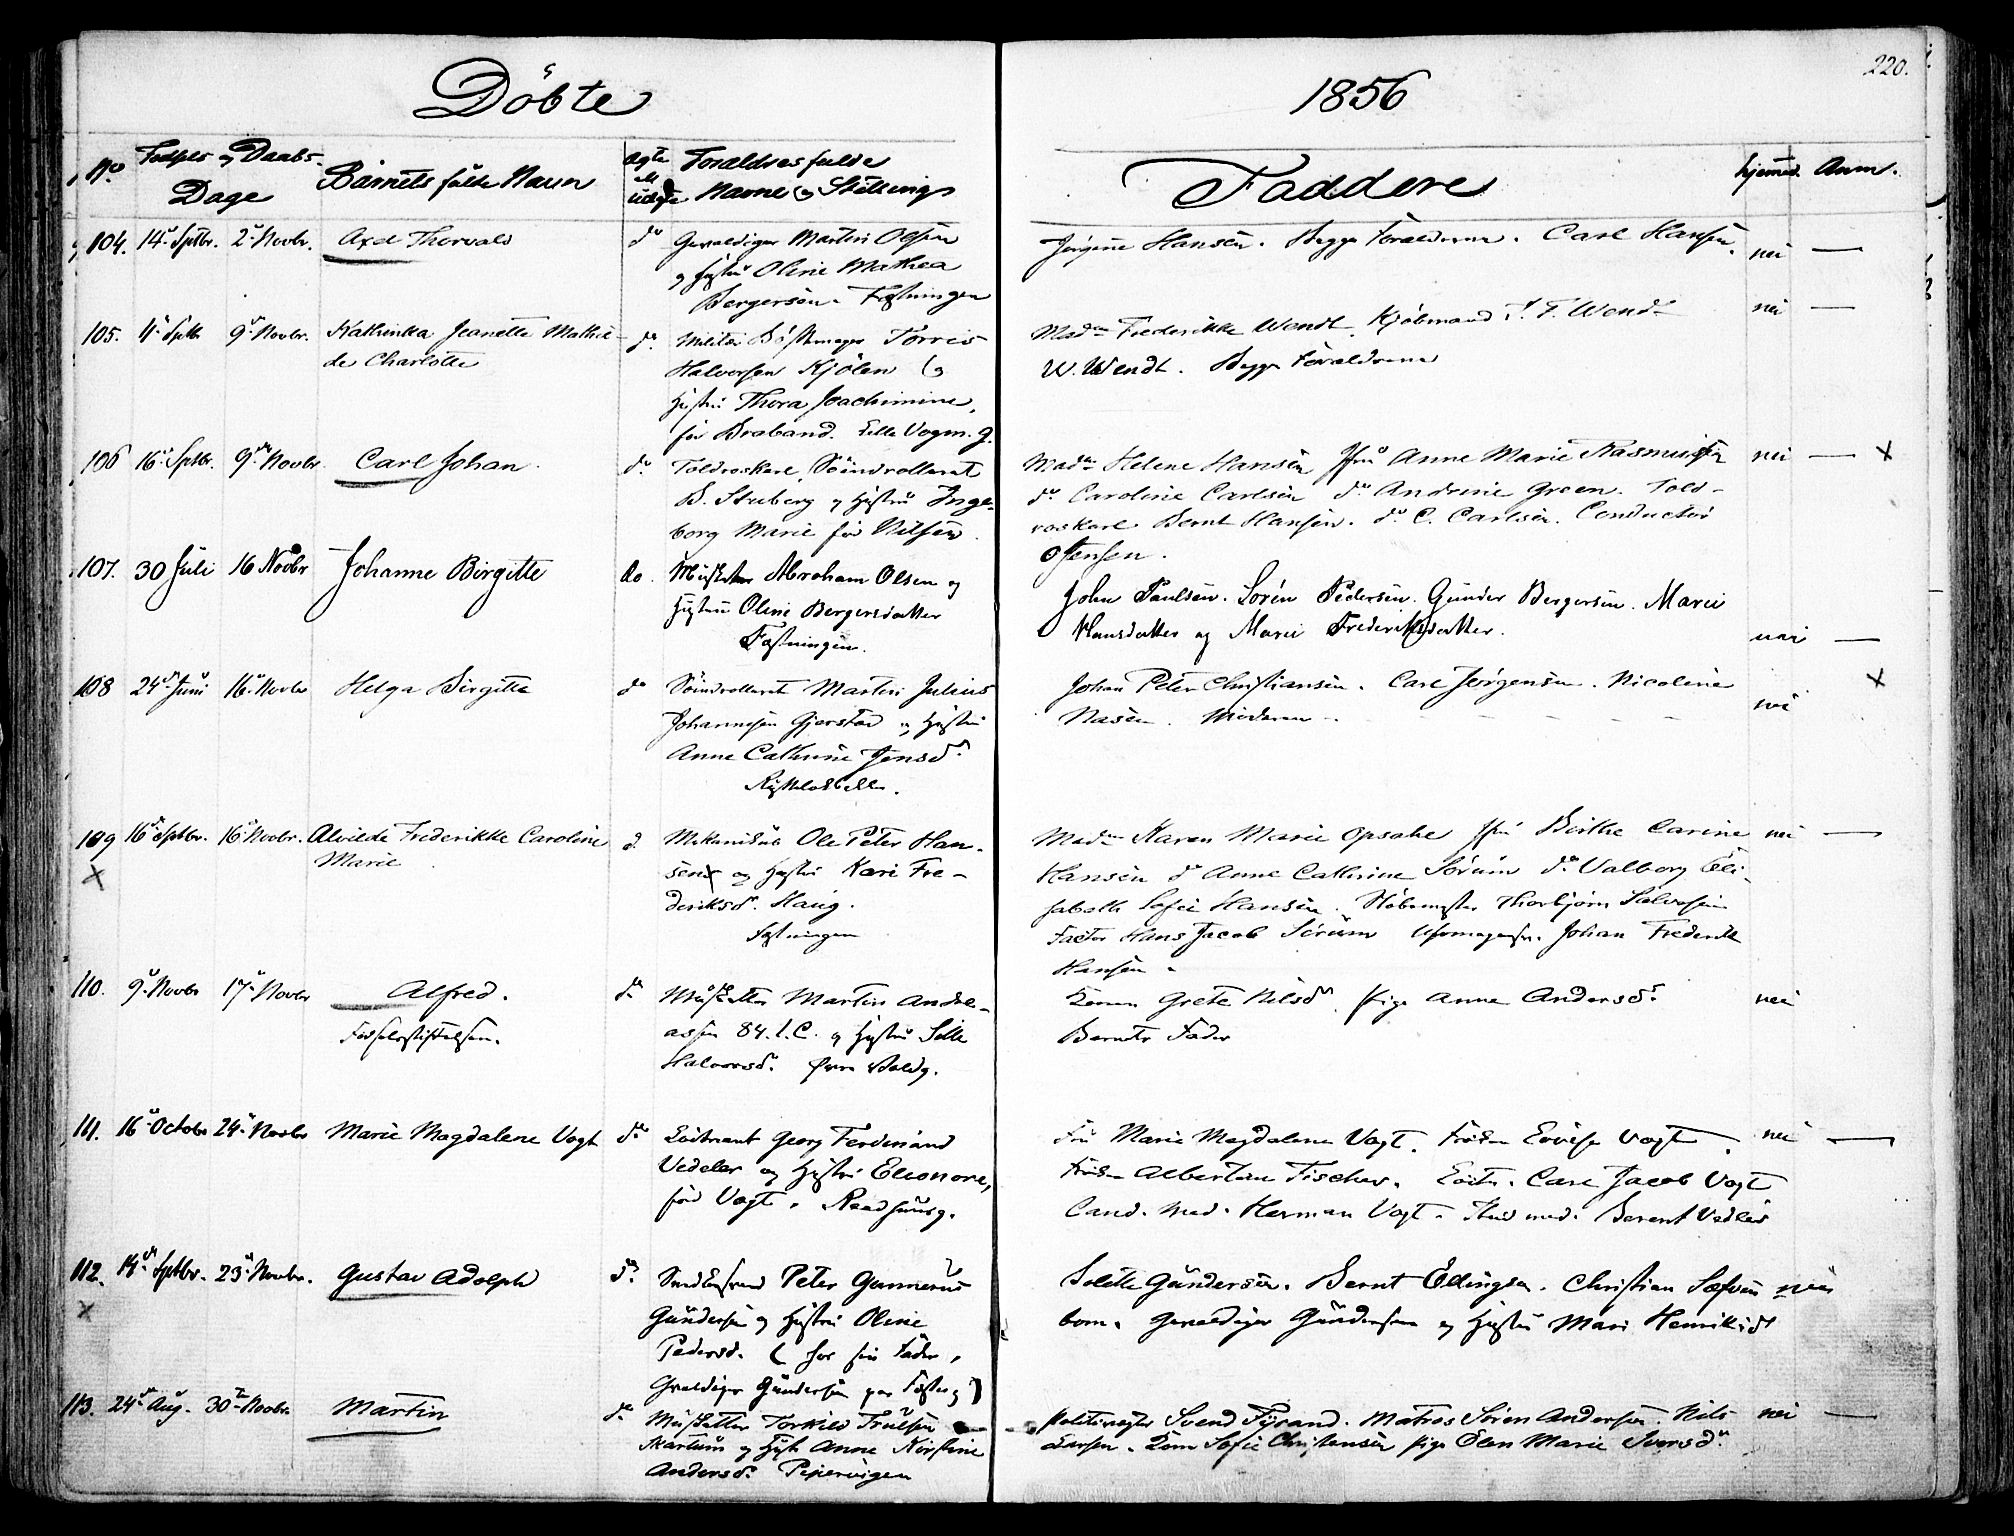 220.
Döbte 1856
No Fødsels og Daabs- Dage
Barnets fulde Navn
ægte ell uægte
Forældres fulde Navne og Stilling
Faddere
hjemmed. Anm.
104. 14. Sptbr. 2. Novbr. Axel Thorvald do Gevaldiger Martin Olsen
og Hustru Oline Mathea
Bergersen. Fæstningen
Jørgine Hansen. Begge Forældrene. Carl Hansen. nei —
105. 11. Sptb 9. Novbr. Kathinka Jeanette Mathil-
de Charlotte
do Militær Bøssemager Torris
Halvorsen Kjölen og
Hustru Thora Joachimine,
før Braband. Lille Vogm. g.
Madm Frederikke Wendt. Kjøbmand J. F. Wendt nei —
W. Wendt. Begge Forældrene
106 16. Sptbr. 9de Novbr Carl Johan. do Toldroskarl, Söindrolleret
B. Stuberg og Hustru Inge-
borg Marie før Nilsen.
Madm Helene Hansen Jfru Anne Marie Rasmussen nei — x
do Caroline Carlsen do Andrine Green. Told-
roskarl Bernt Hansen. do C. Carlsen. Conducteur
Jensen.
107. 30 Juli 16 Novbr Johanne Birgitte do. Musketer Abraham Olsen og
Hustru Oline Bergersdatter
Fæstningen.
John Paulsen. Sørén Pedersen. Gunder Bergersen. Marie
Hansdatter og Marie Frederiksdatter. nei —
108 24de Juni 16. Novbr Helga Birgitte do Söindrolleret Martin Julius
Johannesen Gjerstad og Hustru
Anne Cathrine Jensd.
Johan Peter Christiansen. Carl Jørgensen. Nicoline x
Nasen. Moderen - - - - - - nei
109 16. Sptbr. 16. Novbr. Alvilde Frederikke Caroline
x Marie
d. Mekanikus Ole Peter Han-
sen og Hustru Kari Fre-
deriksd. Haug.
Fæstningen
Madm Karen Marie Opsahl Jfru Birthe Carine nei —
Hansen do Anne Cathrine Sørum do Valborg Eli-
sabeth Sofie Hansen. Thorbjørn Halvorsen
Factor Hans Jacob Sörum Uhrmagersv. Johan Frederik
Hansen.
110. 9. Novbr 17. Novbr Alfred.
Fødselsstiftelsen.
do Musketter Martin Andre-
assen 84. l. C. og Hustru Sille
Halvorsd. Øvre Voldg.
Konen Grete Nilsd. Pige Anne Andersd. nei
Barnets Fader
111. 16. Octobr 24. Novbr Marie Magdalene Vogt do Löitnant Georg Ferdinand
Vedeler og Hustru Eleonore,
født Vogt. Raadhusg.
Fru Marie Magdalene Vogt. Frøken Lovise Vogt. nei —
Frøken Albertine Fischer. Løitn. Carl Jacob Vogt
Cand. Med. Herman Vogt. Stud med. Berent Vedeler
112. 14. Sptbr. 23. Novbr. Gustav Adolph
x
do Peter Gunnerus
Gundersen og Hustru Oline
Pedersd. (hos sin Fader,
Gevaldiger Gundersen paa Fæstng)
Solette Gundersen. Bernt Edingsen. Christian Sæfven- nei
bom. Gevaldiger Gundersen og Hustru Mari Henriksd
113. 24de Aug. 30te Novbr. Martin do Musketter Torkild Trulsen
og Hust. Anne Kirstine
Andersd. Pipervigen
Politivægter Svend Fyrand. Matros Sören Andersen. Nils nei —
Larsen. Kone Sofie Christensen Pige Elen Marie Iversd.